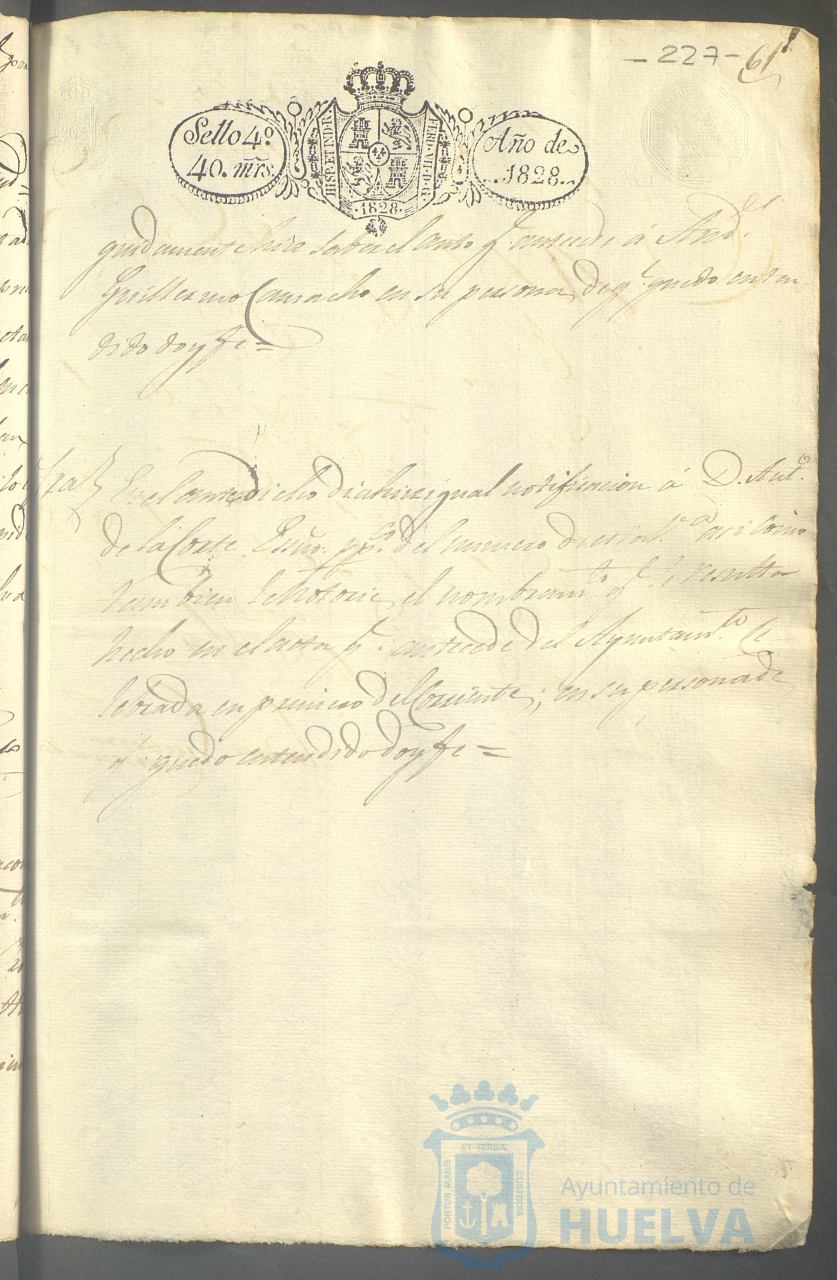 - 227 - 61
Sello 4º
40. mrs.
HISP. ET IND. R.
FERD. VII. D. G.
1828.
Año de
1828.
guidamente hice saber el auto q.e antecede á And.es
Guillermo Camacho en su persona, de q.e quedo enten
dido doy fe =
otra En el antedicho dia hize igual notificacion á D. Ant.º
de la Corte Esño. pp.co del numero de esta asi como
tambien le notorie el nombram.to q.e le resulta
hecho en el acta q.e antecede del Ayuntam.to Ce
lebrada en primero del Corriente; en su persona de
q.e quedo entendido doy fe =
PORTUS MARIS
ET TERRA
CUSTODIA
Ayuntamiento de
HUELVA